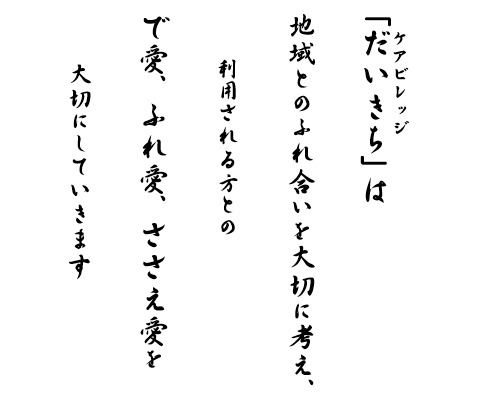 ケアビレッジ
「だいきち」は
地域とのふれ合いを大切に考え、
利用される方との
で愛、ふれ愛、ささえ愛を
大切にしていきます